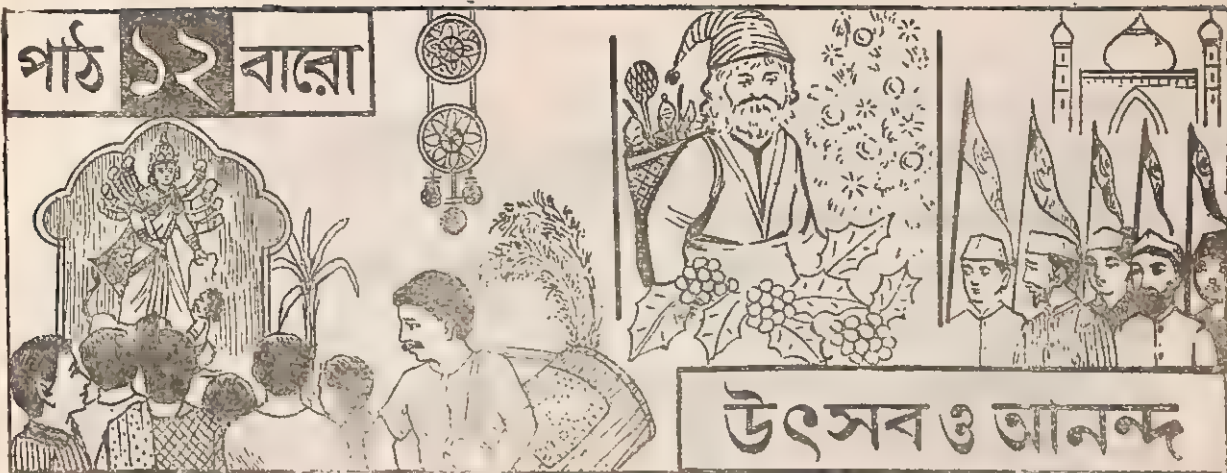 পাঠ ১২ বারো
উৎসব ও আনন্দ